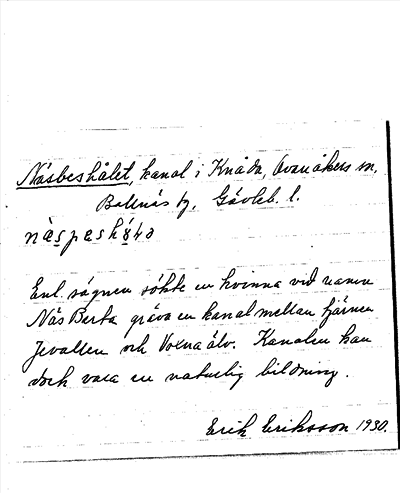 Näsbeshålet, kanal i Knåda, Ovanåkers sn,
Bollnäs tg. Gävleb. l.
Enl. sägnen sökte en kvinna vid namn
Näs Berta gräva en kanal mellan tjärnen
Jevallen och Voxna älv. Kanalen kan
dock vara en naturlig bildning.
Erik Eriksson 1930.